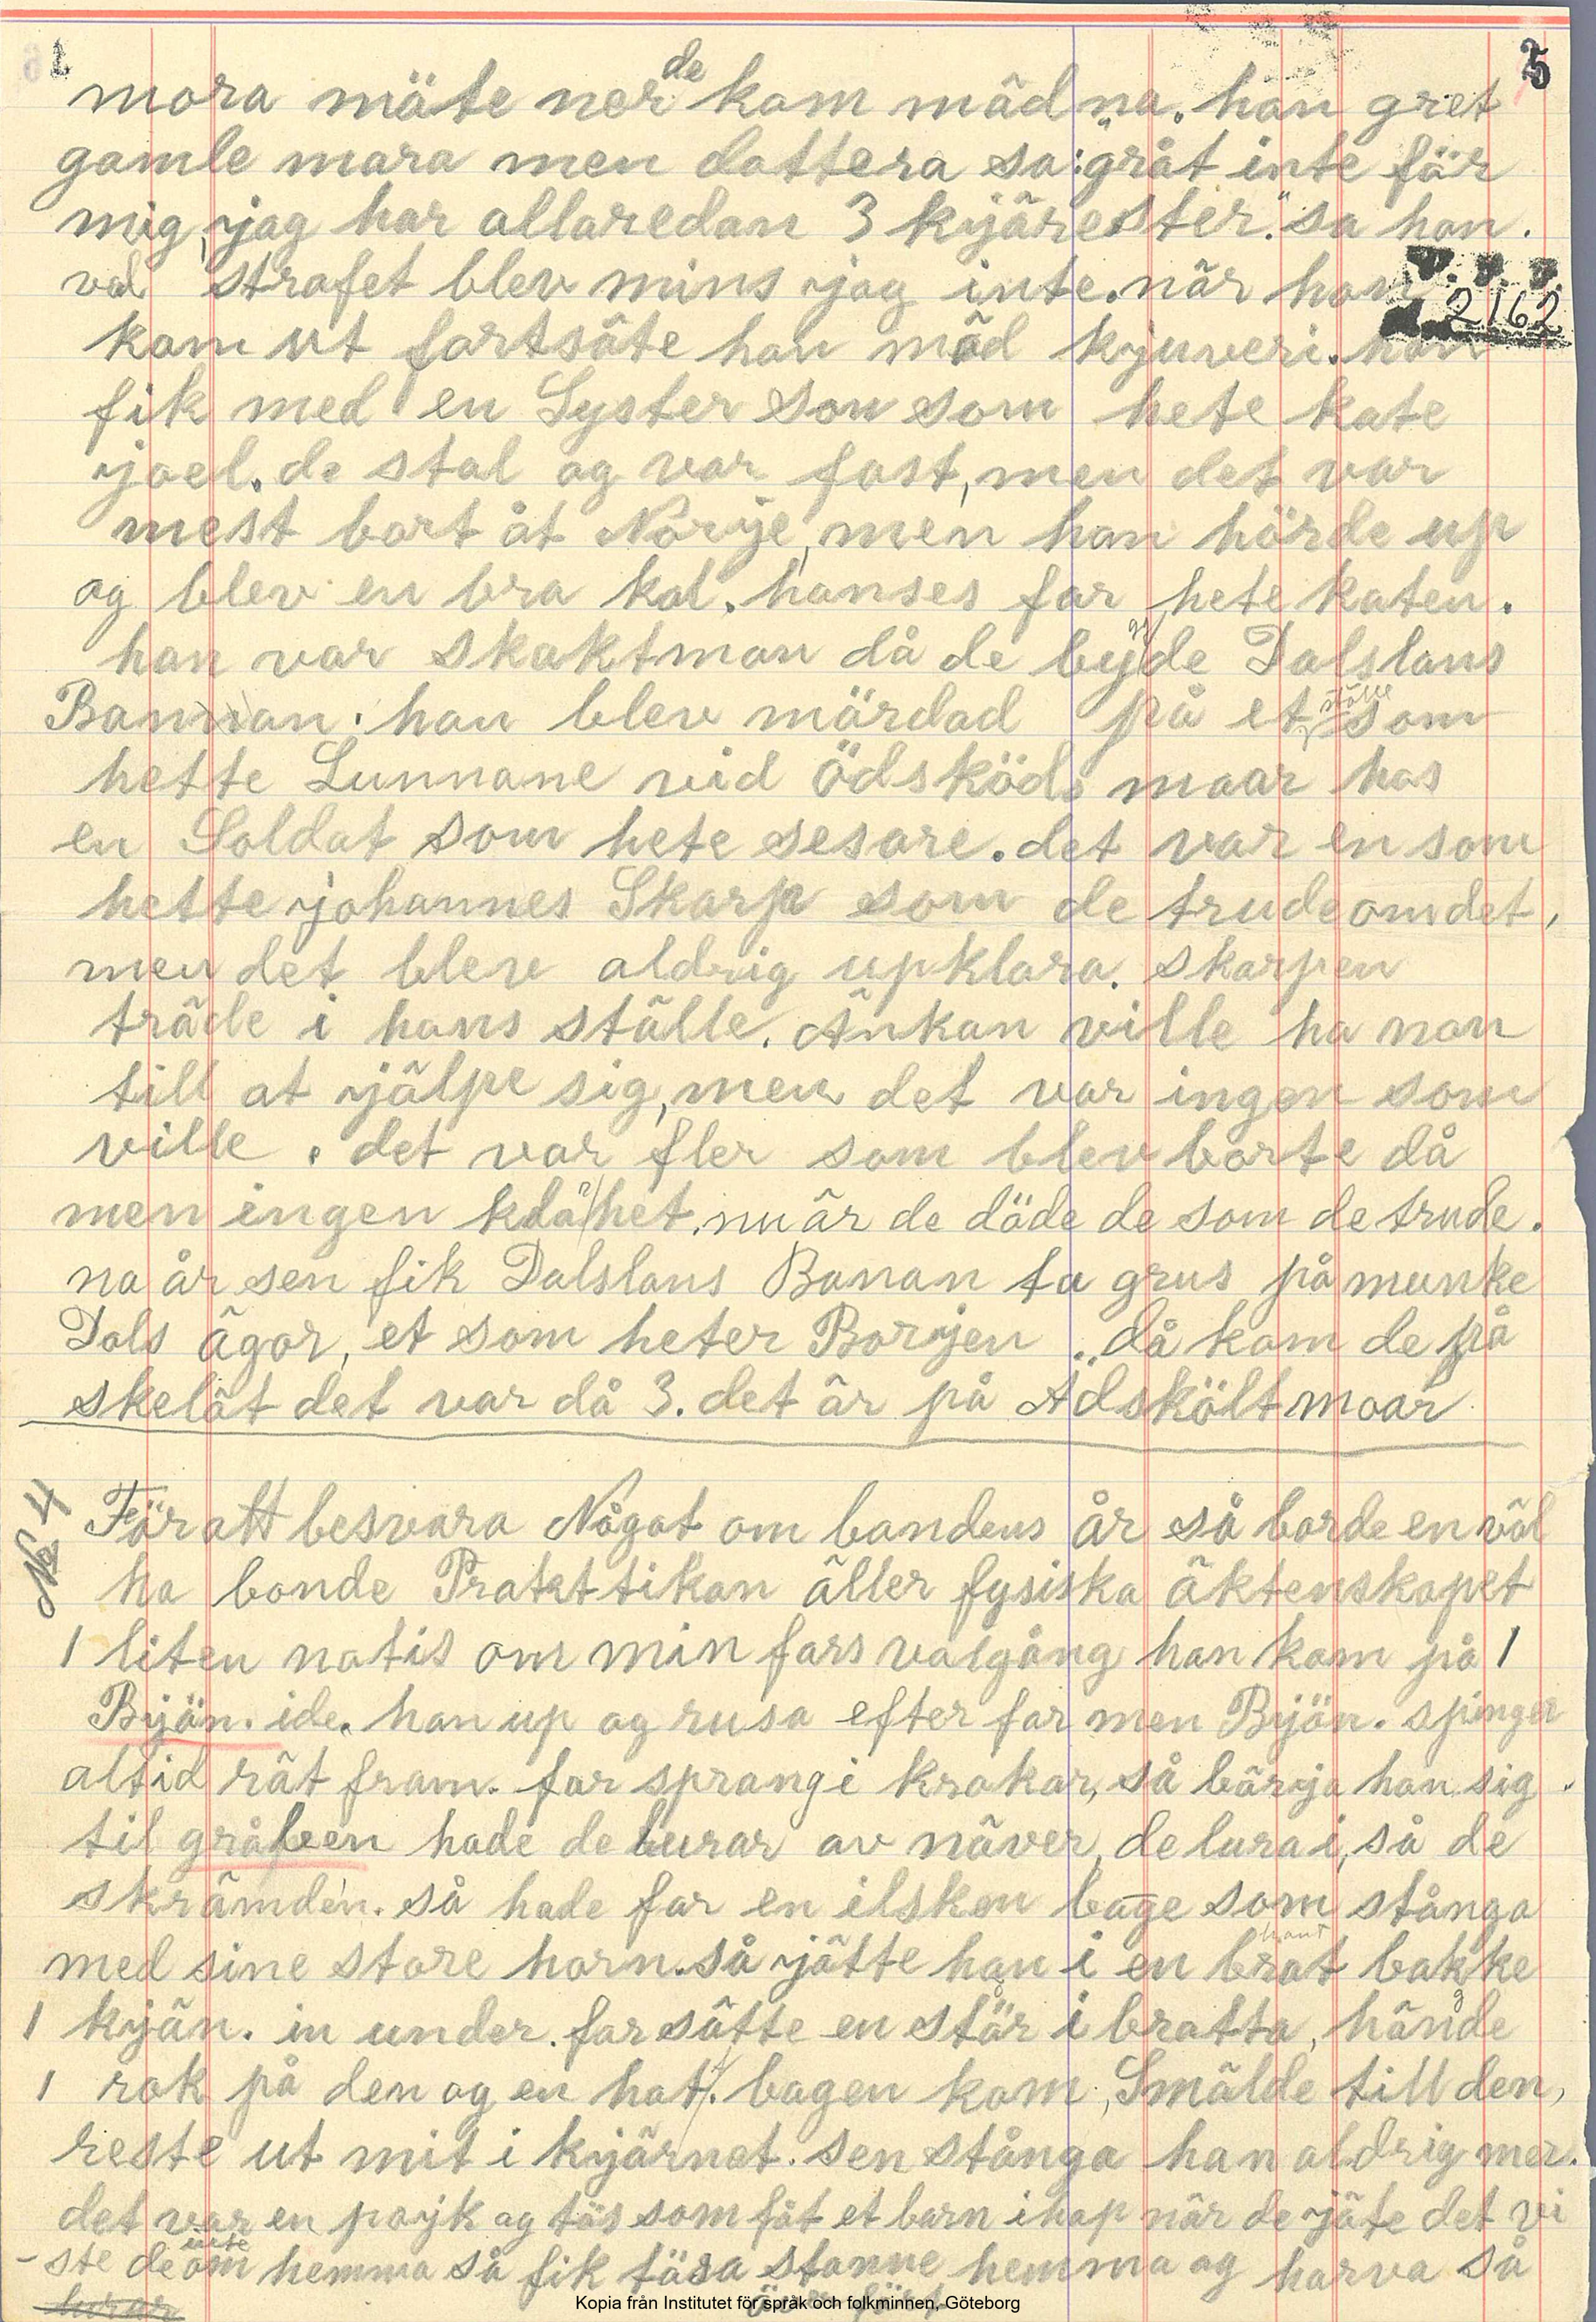 1 25
mora mäte ner de kom mäd na. han gret
gamle mora men dottera sa: "gråt inte för
mig, jag har allaredan 3 kjärester." sa hon.
vad strafet blev mins jag inte. när han
V. F. F. 2162
kom ut fortsäte han mäd kjuveri. han
fik med en Syster son som hete kate
joel. de stal og var fast, men det var
mest bort åt Norje, men han hörde up
og blev en bra kal. hanses far hete katen.
han var skaktman då de bygde Dalslans
Bannan. han blev mördad på et ställe som
hette Lunnane vid ödsköds moar hos
en Soldat som hete sesare. det var en som
hette johannes Skarp som de trude om det,
men det blev aldrig upklara. skarpen
träde i hans ställe. Änkan ville ha non
till at jälpe sig, men det var ingen som
ville. det var fler som blev borte då
men ingen klähet. nu är de döde de som de trude.
na år sen fik Dalslans Banan ta grus på munke
Dals ägor, et som heter Borjen. då kom de på
skelät det var då 3. det är på Ädsköltmoar
No 4
För att besvara Något om bondens år så borde en väl
ha bonde Prakttikan äller fysiska äktenskapet
1 liten notis om min fars valgång han kom på 1
Bjön. ide. han up og rusa efter far men Bjön. spinger
altid rät fram. far sprang i krokar, så bärja han sig.
til gråben hade de lurar av näver, de lura i, så de
skrämden. så hade far en ilsken bage som stånga
med sine store horn. så jätte han i en brat bakke
1 kjän. in under. far sätte en stör i bratta, hängde
1 rok på den og en hat. bagen kom, Smälde till den,
reste ut mit i kjärnet. sen stånga han aldrig mer.
det var en pojk og tös som fåt et barn ihop när de jäte det vi
-ste de inte om hemma så fik tösa stanne hemma og harva så
Kopia från Institutet för språk och folkminnen, Göteborg